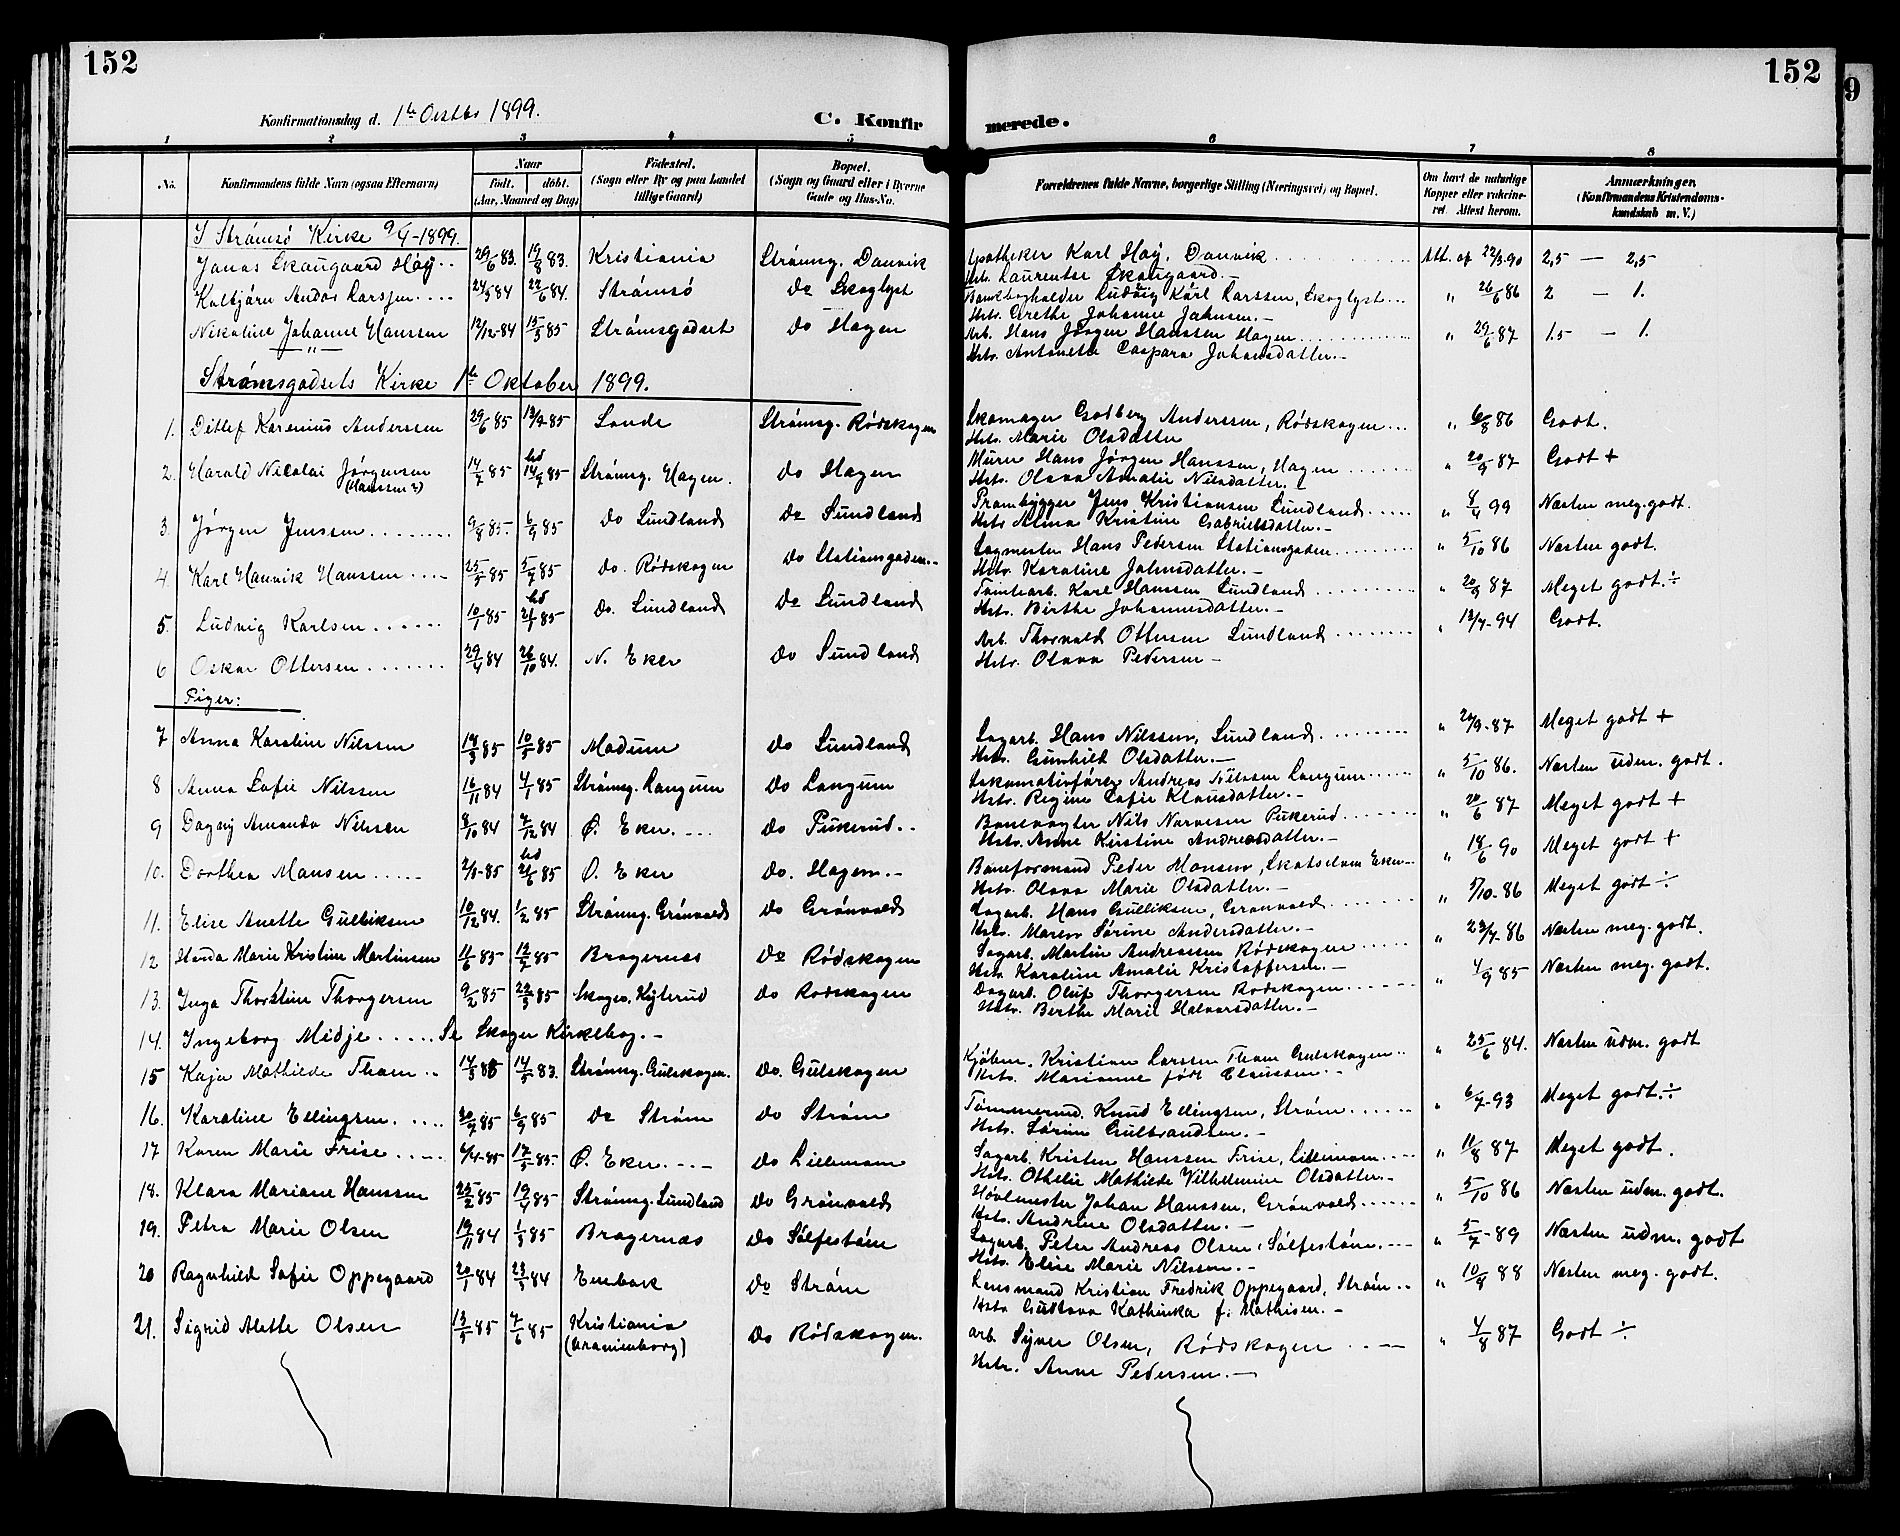 152
152
9
Konfirmationsdag d. 1te Octbr 1899.
C. Konfirmerede.
1 2 3 4 5 6 7 8
No.
Konfirmandens fulde Navn (ogsaa Efternavn)
Naar
født. døbt.
(Aar, Maaned og Dag)
Fødested.
(Sogn eller By og paa Landet
tillige Gaard)
Bopæl.
(Sogn og Gaard eller i Byerne
Gade og Hus-No.
Forældrenes fulde Navne, borgerlige Stilling (Næringsvei) og Bopæl.
Om havt de naturlige
Kopper eller vakcine-
ret. Attest herom.
Anmærkninger.
(Konfirmandens Kristendoms-
kundskab m. V.)
I Strømsø Kirke 9/4-1899.
Jonas Skaugaard Høy 29/6 83. 19/8 83. Kristiania Strømsg. Danvik Apotheker Karl Høy, Danvik Att. af 22/3 90 2,5 — 2,5
Hstr. Laurentse Skaugaard.
Kolbjørn Andor Larssen 24/5 84 22/6 84. Strømsø do Skoglyst Bankbogholder Ludvig Karl Larssen, Skoglyst " 26/6 86 2 — 1.
Hstr. Grethe Johanne Jahnsen.
Nikoline Johanne Hanssen 12/12-84 15/3 85 Strømsgodset do Hagen Arb. Hans Jørgen Hanssen Hagen " 29/6 87 1.5 — 1.
Hstr. Antonette Caspara Johansdatter.
Strømsgodsets Kirke 1te Oktober 1899.
1. Ditlef Karenius Anderssen 29/6 85 13/9-85 Sande Strømsg. Rødskogen Skomager Godberg Anderssen, Rødskogen " 6/8 86 Godt.
Hstr. Marie Olsdatter
2. Harald Nicolai Jørgensen 14/7 85 hd 14/9 85 Strømsg. Hagen. do Hagen Murer Hans Jørgen Hanssen, Hagen " 20/9 87 Godt +
(Hanssen?)
Hstr. Olava Amalie Nilsdatter.
3. Jørgen Jenssen 9/8 85. 6/9 85 do Sundland do Sundland Prambygger Jens Kristiansen Sundland " 8/4 99 Næsten meg. godt.
Hstr Alma Kristine Gabrielsdatter.
4. Karl Hanvik Hanssen 25/5 85 5/7 85 do. Rødskogen do Stationsgaden Sagmester Hans Pedersen Stationsgaden " 5/10 86 Næsten godt.
Hstr. Karoline Johnsdatter.
5. Ludvig Karlsen 10/1 85 hd 21/1 85 do. Sundland do Sundland Tomtearb. Karl Hanssen Sundland " 20/9 87 Meget godt ÷
Hstr. Birthe Johannesdatter.
6 Oskar Ottersen 29/4 84 26/10 84. N. Eker do Sundland Arb. Thorvald Ottersen Sundland " 12/7-94 Godt.
Hstr. Olava Pedersen
Piger:
7 Anna Karoline Nilssen 14/3 85 10/5 85 Modum do Sundland Sagarb. Hans Nilssen, Sundland " 20/9-87 Meget godt +
Hstr. Gunhild Olsdatter.
8 Anna Sofie Nilssen 16/11 84 4/1 85 Strømsg. Langum do Langum Lokomotivfører Andreas Nilssen Langum " 5/10 86. Næsten udm. godt.
Hstr. Regine Sofie Klausdatter.
9 Dagny Amanda Nilssen 8/10 84 7/12 84 Ø. Eker. do Pukerud Banevogter Nils Narvesen Pukerud " 20/6 87 Meget godt +
Hstr. Anne Kirstine Andreasdatter.
10. Dorthea Monsen 2/1-85 hd 21/6 85 Ø. Eker do. Hagen. Baneformand Peder Monsen, Skotselven Eker " 18/6 90 Meget godt +
Hstr. Olava Marie Olsdatter.
11. Elise Anette Gulliksen 10/12 84. 1/2 85 Strømsg. Grønvold do Grønvold Sagarb. Hans Gulliksen, Grønvold " 5/10.86 Meget godt ÷
Hstr. Maren Sørine Andersdatter.
12 Handa Marie Kristine Martinsen 11/6 85 12/7 85 Bragernæs do Rødskogen Sagarb. Martin Andreassen Rødskogen " 23/7-86 Næsten meg. godt.
Hstr. Karoline Amalie Kristoffersen.
13. Inga Thorstine Thorgersen 9/2 85 22/3 85 Skoger. Kylerud do Rødskogen Dagarb. Oluf Thorgersen Rødskogen " 4/9 85 Næsten meg. godt.
Hstr. Berthe Marie Halvorsdatter.
14. Ingeborg Midje Se Skoger Kirkebog.
15 Kaja Mathilde Tham 14/3 83 14/5 83. Strømsg. Gulskogen. do. Gulskogen Kjøbm. Kristian Larssen Tham Gulskogen " 25/6 84. Næsten udm. godt
Hstr. Marianne født Claussen.
16. Karoline Ellingsen. 20/7 85 6/9 85 do Strøm do Strøm Tømmermd. Knud Ellingsen, Strøm " 6/7-93 Meget godt ÷
Hstr. Sørine Gulbrandsen.
17 Karen Marie Frise 4/4-85 17/5-85. Ø. Eker. do Lillemoen Sagarb. Kristen Hanssen Frise, Lillemoen " 11/8 87 Meget godt.
Hstr. Othelie Mathilde Wilhelmine Olsdatter.
18. Klara Mariane Hanssen 25/2 85 19/4 85 Strømsg. Sundland do Grønvold Høvlmester Johan Hanssen, Grønvold " 5/10 86 Næsten udm. godt.
Hstr. Andrine Olsdatter.
19. Petra Marie Olsen 19/11 84 1/3 85 Bragernæs do Sølfestøen Sagarb. Peter Andreas Olsen, Sølfestøen. " 5/7-89 Næsten udm. godt
Hstr. Elise Marie Nilssen.
20 Ragnhild Sofie Oppegaard 20/1 84 23/3 84 Enebak do Strøm Lensmand Kristian Fredrik Oppegaard, Strøm " 10/9 88 Næsten meg. godt.
Hstr Gustava Kathinka f. Mathisen.
21. Sigrid Alette Olsen 13/5 85 7/6 85 Kristiania do Rødskogen. arb. Syver Olsen, Rødskogen " 4/8 87 Godt ÷
(Uranienborg)
Hstr. Anne Pedersen.